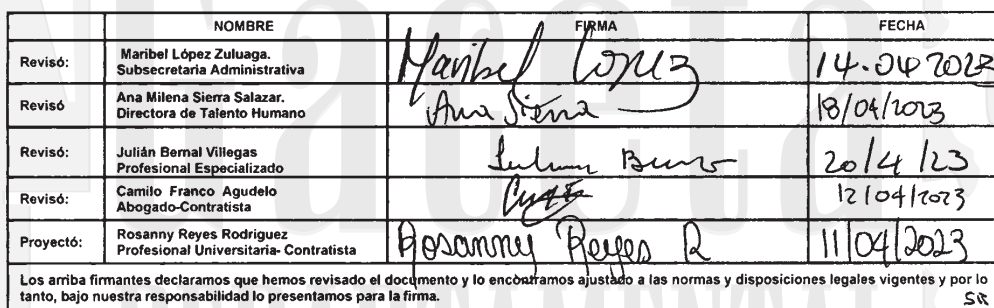 NOMBRE FIRMA FECHA
Revisó: Maribel López Zuluaga.
Subsecretaria Administrativa
Maribel López 14.04 2023
Revisó Ana Milena Sierra Salazar.
Directora de Talento Humano
Ana Sierra 18/04/2023
Revisó: Julián Bernal Villegas
Profesional Especializado
20/4/23
Revisó: Camilo Franco Agudelo
Abogado-Contratista
12/04/2023
Proyectó: Rosanny Reyes Rodriguez
Profesional Universitaria- Contratista
Rosanny Reyes R 11/04/2023
Los arriba firmantes declaramos que hemos revisado el documento y lo encontramos ajustado a las normas y disposiciones legales vigentes y por lo
tanto, bajo nuestra responsabilidad lo presentamos para la firma.